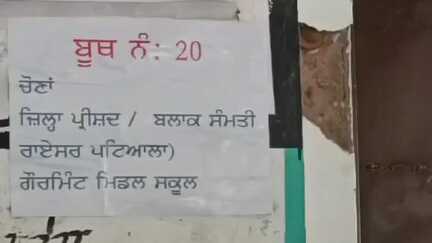 ਬੂਥ ਨੰ: 20
ਚੋਣਾਂ
ਜ਼ਿਲ੍ਹਾ ਪ੍ਰੀਸ਼ਦ / ਬਲਾਕ ਸੰਮਤੀ
ਰਾਏਸਰ ਪਟਿਆਲਾ)
ਗੌਰਮਿੰਟ ਮਿਡਲ ਸਕੂਲ